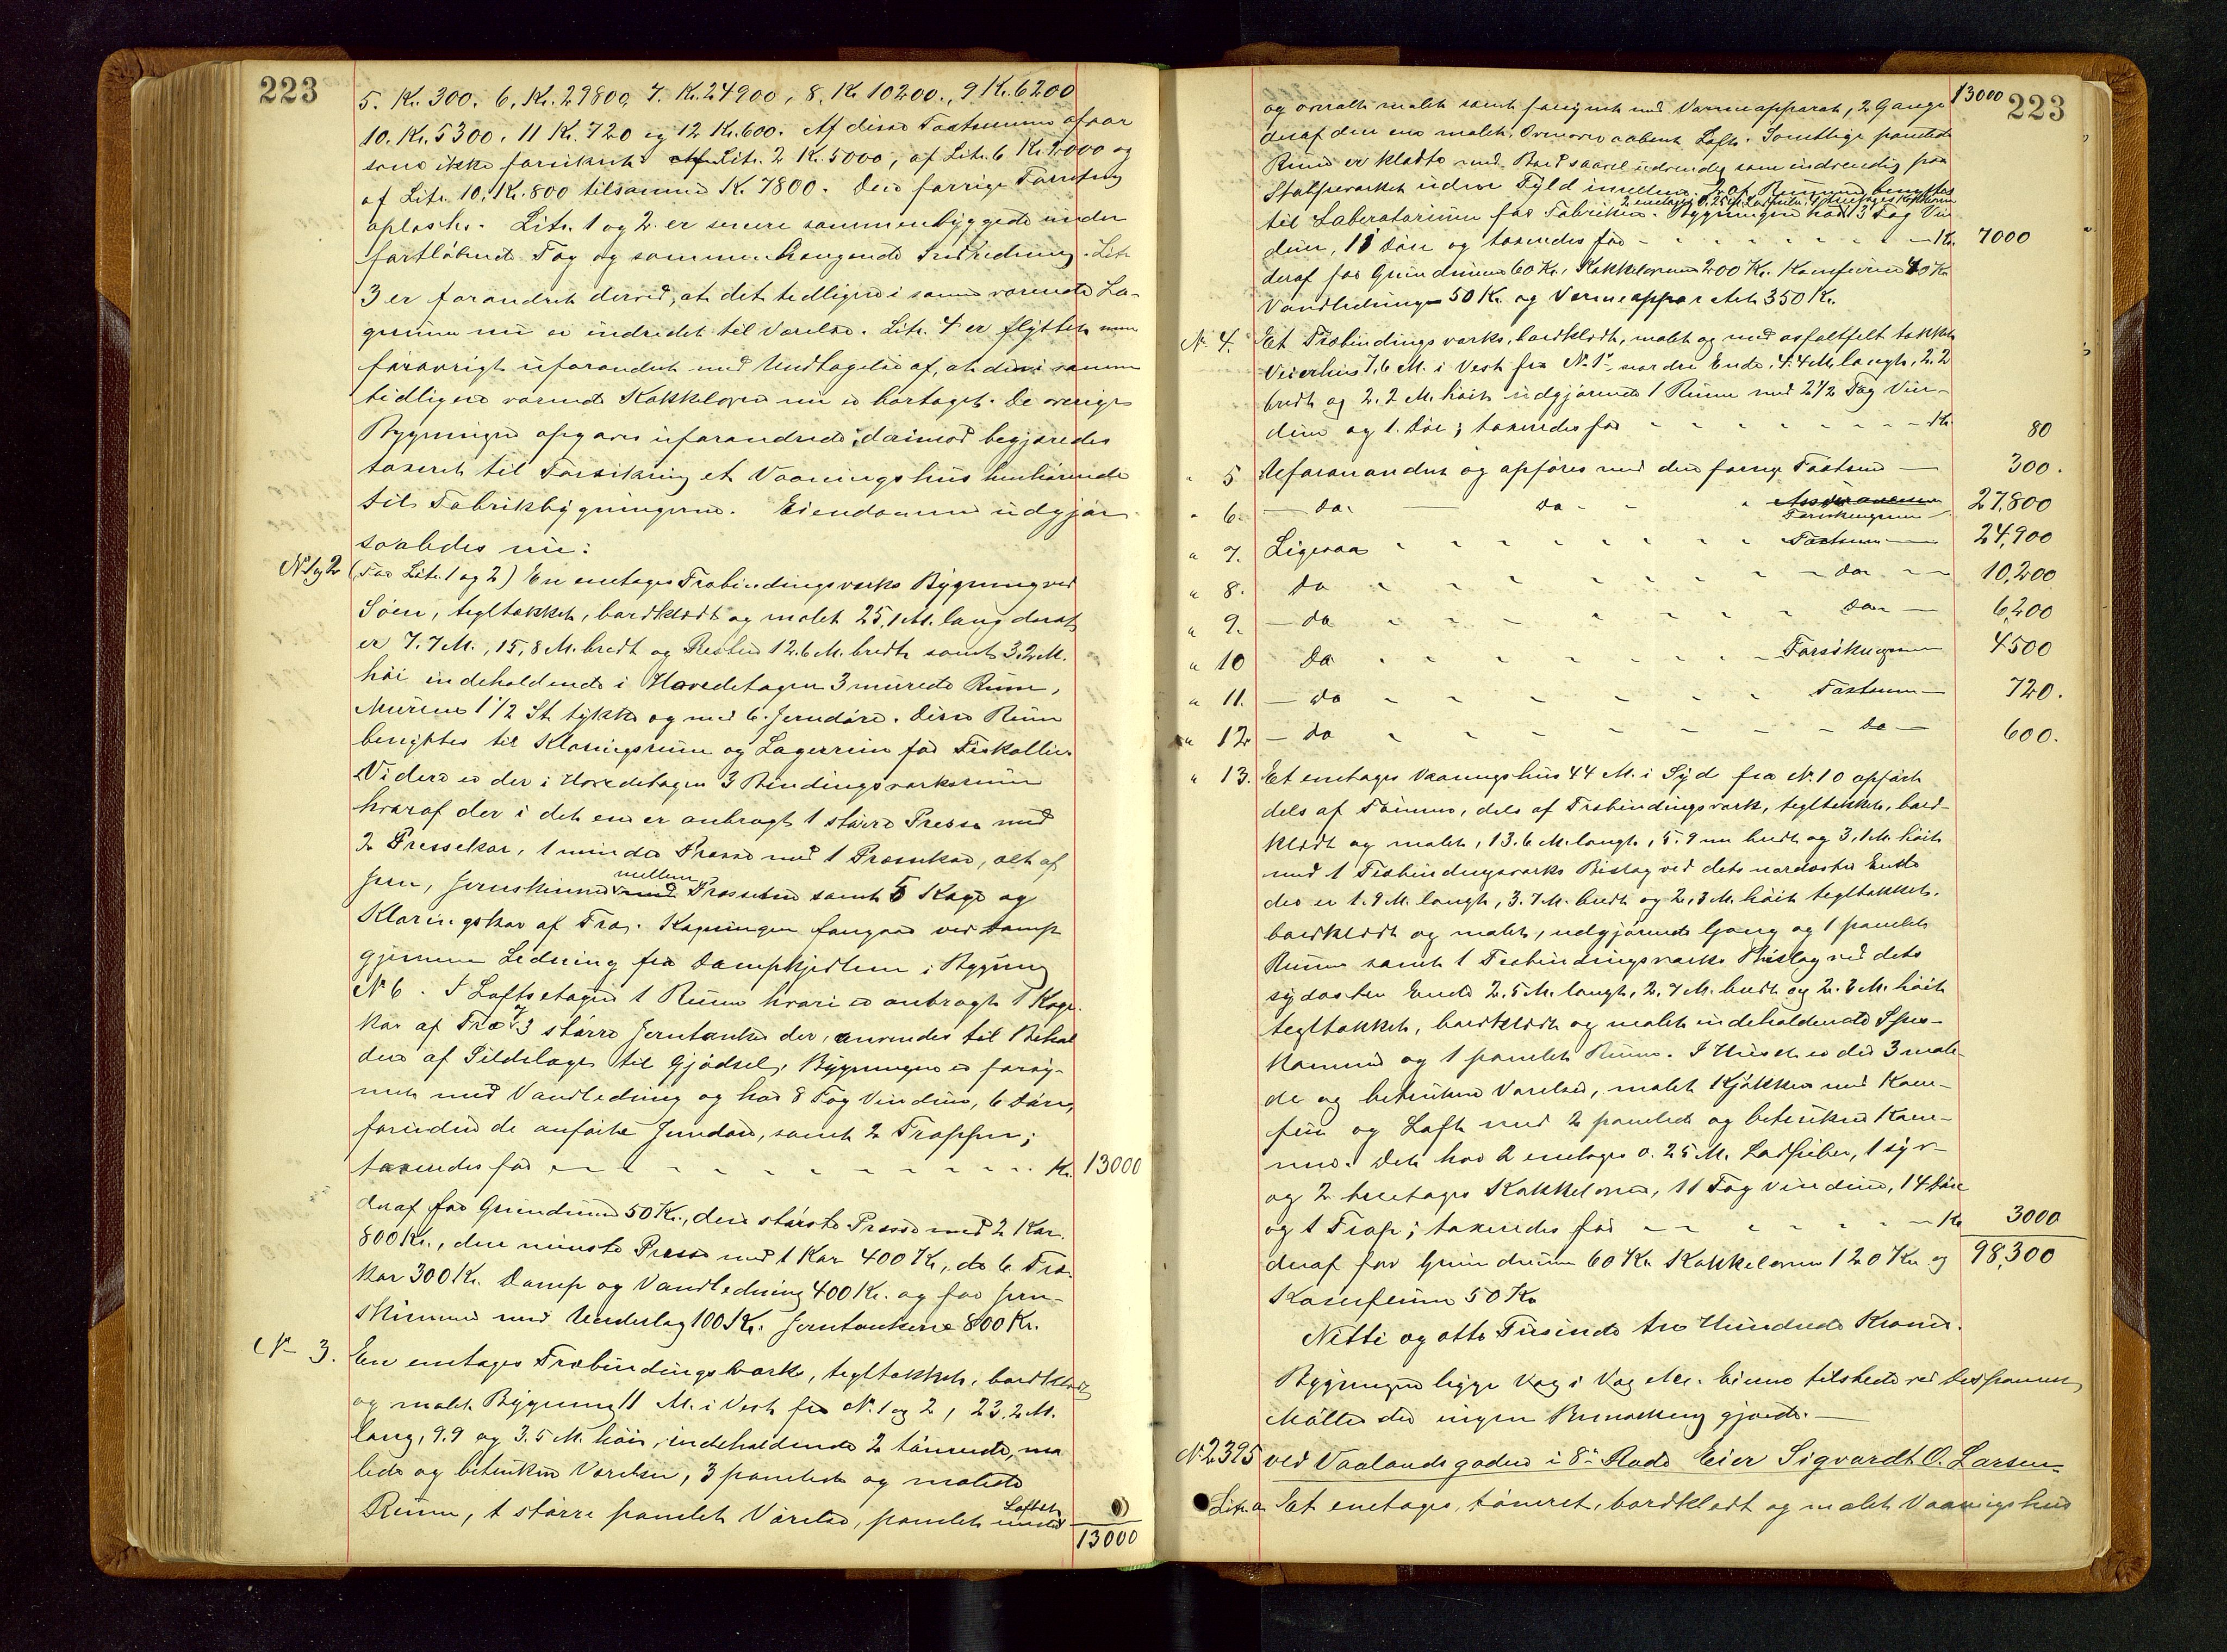 223
5. Kr. 300. 6. Kr. 29800, 7. Kr. 24900, 8. Kr 10200., 9. Kr. 6200
10. Kr. 5300. 11 Kr. 720 og 12 Kr. 600. Af disse Taxtsummer
som ikke forsikret af Litr. 2 Kr. 5000, af Litr. 6 Kr. 2000 og
af Litr. 10. Kr. 800 tilsammen Kr. 7800. Den forrige Forretning
oplæstes. Litr. 1 og 2 er senere sammenbyggede under
fortløbende Tag og sammenhængende Indredning. Litr
3 er forandret derved, at det tidligere i samme værende La-
gerrum nu er indredet til Værelse. Litr. 4 er flyttet men
forøvrigt uforandret med Undtagelse af, at den i samme
tidligere værende Kakkelovn nu er borttaget. De øvrige
Bygninger opgaves uforandrede, derimod begjæredes
taxeret til Forsikring et Vaaningshus henhørende
til Fabrikbygningerne. Eiendommen udgjør
saaledes nu:
No 1 og 2 (Før Litr. 1 og 2) En enetages Træbindingsværks Bygning ved
Søen, tegltækket, bordklædt og malet 25,1 M. lang deraf
er 7.7 M., 15,8 M. bredt og Resten 12.6 M. bredt samt 3.2 M.
høi indeholdende i Hovedetagen 3 murede Rum,
Murene 1 1/2 St. tykke og med 6. Jerndøre. Disse Rum
benyttes til Klaringsrum og Lagerrum for
Videre er der i Hovedetagen 3 Bindingsværksrum
hvoraf der i det ene er anbragt 1 større Presse med
2 Pressekar, 1 mindre Presse med 1 Pressekar, alt af
Jern, Jernskinner mellem Presserne samt 5 Koge og
Klaringskar af Træ. Kogningen foregaar ved Damp
gjennem Ledning fra Dampkjedlen i Bygning
No 6. I Loftsetagen 1 Rum hvori er anbragt 1 Koge-
kar af Træ og 3 større Jerntanke der anvendes til Behol
dere af Sildelage til Gjødsel. Bygningen er forsy-
net med Vandledning og har 8 Fag Vinduer, 6 Døre,
foruden de anførte Jerndøre, samt 2 Trapper;
taxeredes for - - - - Kr. 13000
deraf for Grundmuren 50 Kr., den største Presse med 2 Kar
800 Kr., den mindste Presse med 1 Kar 400 Kr., de 6 Træ-
kar 300 Kr. Damp og Vandledning 400 Kr. og for Jern-
skinnerne med Underlag 100 Kr. Jerntankerne 800 Kr.
No 3. En enetages Træbindingsværks, tegltækket, bordklædt
og malet Bygning 11 M. i Vest fra No. 1 og 2, 23,2 M.
lang, 9.9 og 3.5 M. høi, indeholdende 2 tømrede, ma
lede og betrukne Værelser, 3 panelede og malede
Rum, 1 større panelet Værelse, panelet under Loftet
13000
223
13000
og overalt malet samt forsynet med Varmeapparat, 2 Gange
deraf den ene malet. Ovenover aabent Loft. Samtlige panelede
Rum er klædte med Bord saavel udvendig som indvendig paa
Stolpeværket uden Fyld imellem. 2 af Rummene benyttes
til Laboratorium for Fabriken. Bygningen har 13 Fag Vin
duer, 11 Døre og taxeredes for - - - - Kr. 7000
deraf for Grundmuren 60 Kr., Kakkelovnene 200 Kr. Komfuren 40 Kr.
Vandledningen 50 Kr. og Varmeapparatet 350 Kr.
No 4. Et Træbindingsværks, bordklædt, malet og med asfaltfelt tækket
Veierhus 7,6 M. i Vest fra No. 1's nordre Ende, 4.4 M. langt, 2.2
bredt og 2.2 M. høit udgjørende 1 Rum med 2 1/2 Fag Vin-
duer og 1. Dør; taxeredes for - - - - Kr. 80
" 5 Uforanandret og opføres med den forrige Taxtsum - 300.
" 6. - do. - do - - " Assurancesum Forsikringssum 27,800
" 7. Ligesaa " " " " Taxtsum 24,900
" 8. do " " " " - do - - 10,200
" 9. - do " " " " do - 6,200
" 10 do " " " " Forsikringssum 4500
" 11. - do " " " " Taxtsum - 720.
" 12 - do " " " " do - 600.
" 13. Et enetages Vaaningshus 44 M. i Syd fra No. 10 opført
dels af Tømmer, dels af Træbindingsværk, tegltækket, bord-
klædt og malet, 13.6 M. langt, 5.9 m bredt og 3,1 M. høit
med 1 Træbindingsværks Bislag ved dets nordøstre Ende
der er 1.9 M. langt, 3.7 M. bredt og 2,3 M. høit tegltækket,
bordklædt og malet, udgjørende Gang og 1 panelet
Rum samt 1 Træbindingsværks Bislag ved dets
sydøstre Ende 2.5 M. langt, 2.7 M. bredt og 2.3 M. høit
tegltækket, bordklædt og malet indeholdende Spis-
kammer og 1 panelet Rum. I Huset er der 3 male-
de og betrukne Værelser, malet Kjøkken med Kom-
fur og Loft med 2 panelede og betrukne Kam-
mer. Det har 2 enetages 0.25 M. Ladpiber, 1 syv-
og 2 treetages Kakkelovne, 11 Fag Vinduer, 14 Døre
og 1 Trap; taxeredes for - - - - Kr 3000
deraf for Grundmuren 60 Kr. Kakkelovnene 120 Kr. og 98,300
Komfuren 50 Kr.
Nitti og otte Tusinde tre Hundrede Kroner.
Bygningerne ligge Vaag i Vaag. Eierne tilstede ved Disponent
Møller der ingen Bemærkning gjorde. -
No 2395 ved Vaalandsgaden i 8de Rode Eier Sigvardt O. Larsen
Litr. a Et enetages, tømret, bordklædt og malet Vaaningshus